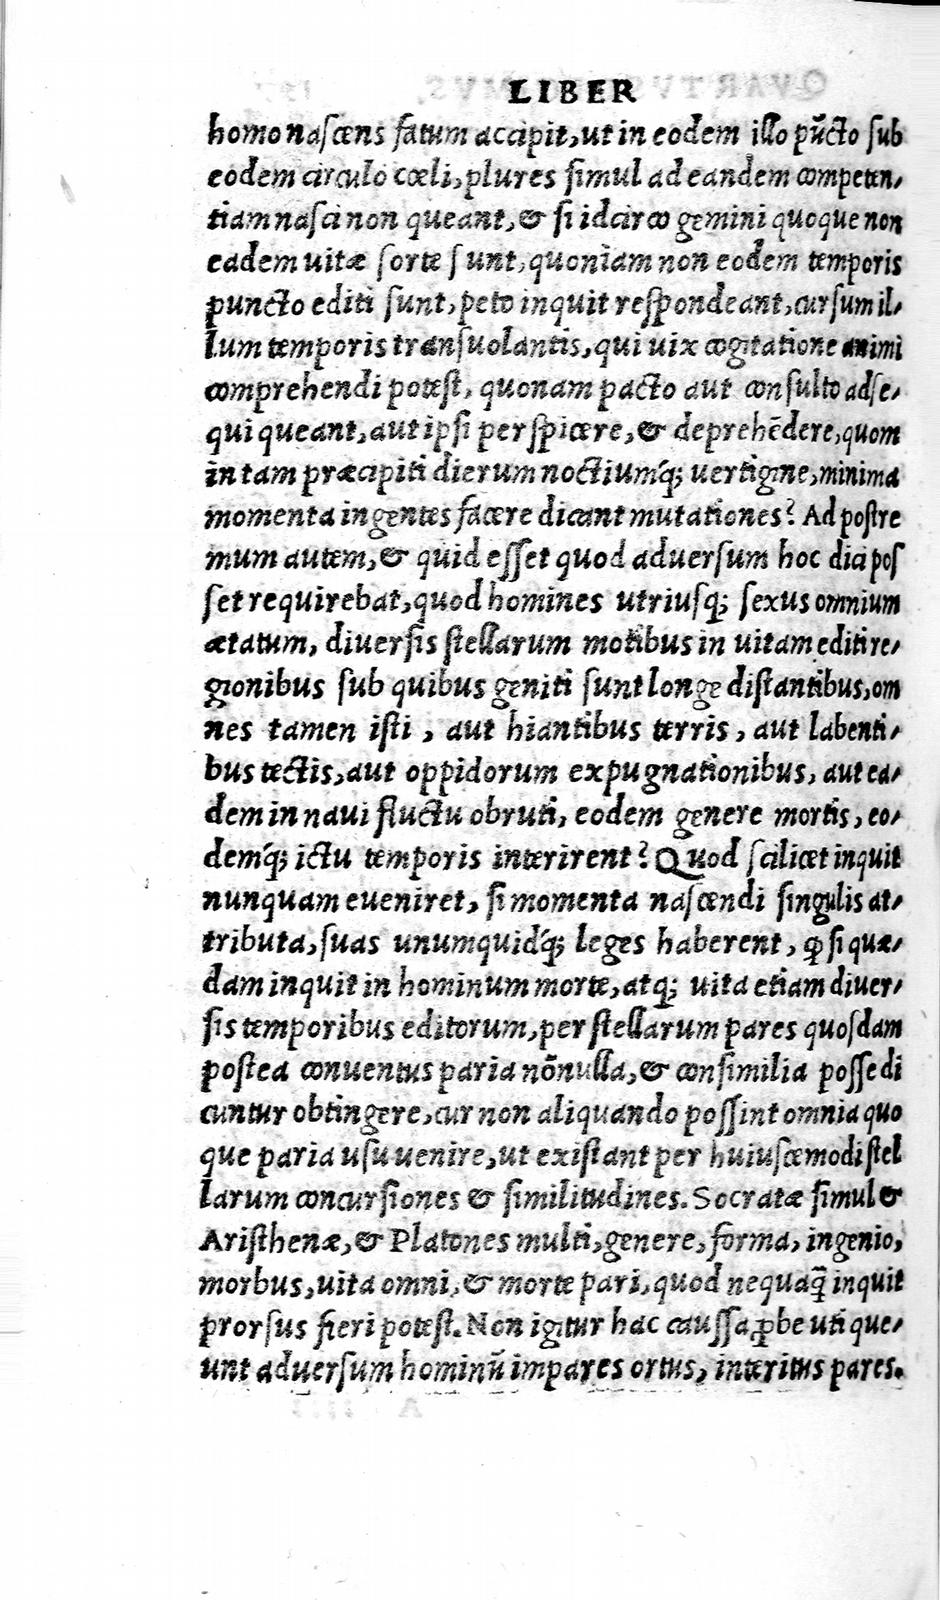 LIBER
homo nascens fatum accipit, ut in eodem illo pūcto sub
eodem circulo cœli, plures simul ad eandem competen-
tiam nasci non queant, & si idcirco gemini quoque non
eadem uitæ sorte sunt, quoniam non eodem temporis
puncto editi sunt, peto inquit respondeant, cursum il-
lum temporis transuolantis, qui uix cogitatione animi
comprehendi potest, quonam pacto aut consulto adse-
qui queant, aut ipsi perspicere, & deprehēdere, quom
in tam præcipiti dierum noctiumq́; uertigine, minima
momenta ingentes facere dicant mutationes? Ad postre
mum autem, & quid esset quod aduersum hoc dici pos
set requirebat, quod homines utriusq; sexus omnium
ætatum, diuersis stellarum motibus in uitam editi re-
gionibus sub quibus geniti sunt longe distantibus, om
nes tamen isti, aut hiantibus terris, aut labenti-
bus tectis, aut oppidorum expugnationibus, aut ea-
dem in naui fluctu obruti, eodem genere mortis, eo-
demq́; ictu temporis interirent? Quod scilicet inquit
nunquam eueniret, si momenta nascendi singulis at-
tributa, suas unumquidq́; leges haberent, ꝙ si quæ-
dam inquit in hominum morte, atq; uita etiam diuer-
sis temporibus editorum, per stellarum pares quosdam
postea conuentus paria nōnulla, & consimilia posse di
cuntur obtingere, cur non aliquando possint omnia quo
que paria usu uenire, ut existant per huiuscemodi stel
larum concursiones & similitudines. Socratæ simul &
Aristhenæ, & Platones multi, genere, forma, ingenio,
morbus, uita omni, & morte pari, quod nequaq̄ inquit
prorsus fieri potest. Non igitur hac caussa ꝓbe uti que-
unt aduersum hominū impares ortus, interitus pares.